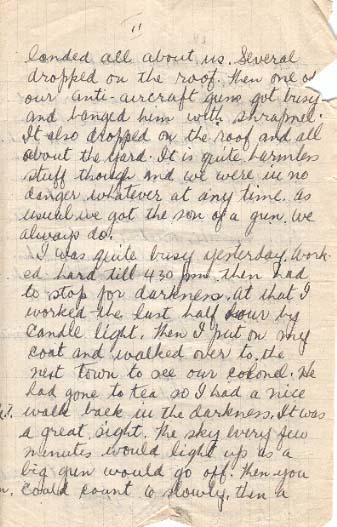 11
landed all about us. Several
dropped on the roof. Then one of
our anti-aircraft guns got busy
and banged him with shrapnel.
It also dropped on the roof and all
about the yard. It is quite harmless
stuff though and we were in no
danger whatever at any time. As
usual we got the son of a gun. We
always do.
I was quite busy yesterday. Work-
ed hard till 4 30 pm. then had
to stop for darkness. At that I
worked the last half hour by
candle light. Then I put on my
coat and walked over to the
next town to see our colonel. He
had gone to tea so I had a nice
walk back in the darkness. It was
a great sight. The sky every few
minutes would light up as a
big gun would go off. Then you
could count 10 slowly, then a